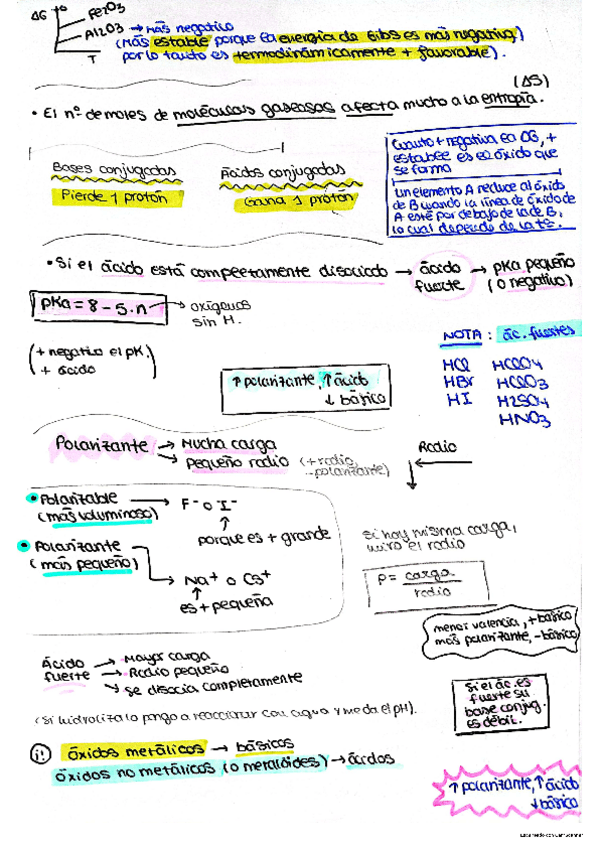 ΔG
Fe2O3
Al2O3 → más negativo
T
(Más estable porque la energía de Gibs es más negativa,)
por lo tanto es termodinámicamente + favorable).
(ΔS)
• El nº de moles de moléculas gaseosas afecta mucho a la entropía.
Bases conjugadas
Pierde 1 protón
Ácidos conjugadas
Gana 1 protón
Cuanto + negativa ea ΔG, +
estable es el óxido que
se forma
Un elemento A reduce al óxido
de B cuando la línea de óxido de
A esté por debajo de la de B,
lo cual depende de la Tª.
• Si el ácido está completamente disociado → ácido fuerte → pKa pequeño (o negativo)
pKa = 8 - 5·n → oxígenos
sin H.
(+ negativo el pK.
+ ácido)
↑ polarizante, ↑ ácido
↓ básico
NOTA: ác. fuertes
HCl HClO4
HBr HClO3
HI H2SO4
HNO3
Polarizante → Mucha carga
→ Pequeño radio (+ radio,
- polarizante)
Radio
• Polarizable → F⁻ o I⁻
(más voluminoso)
porque es + grande
• Polarizante
(más pequeño) → Na⁺ o Cs⁺
es + pequeña
Si hay misma carga,
miro el radio
P = carga / radio
menor valencia, + básico
más polarizante, - básico
Ácido fuerte → Mayor carga
→ Radio pequeño
→ se disocia completamente
Si el ác. es
fuerte su
base conjug.
es débil.
(si hidroliza lo pongo a reaccionar con agua y me da el pH).
¡! óxidos metálicos → básicos
óxidos no metálicos (o metaloides) → ácidos
↑ polarizante, ↑ ácido
↓ básico